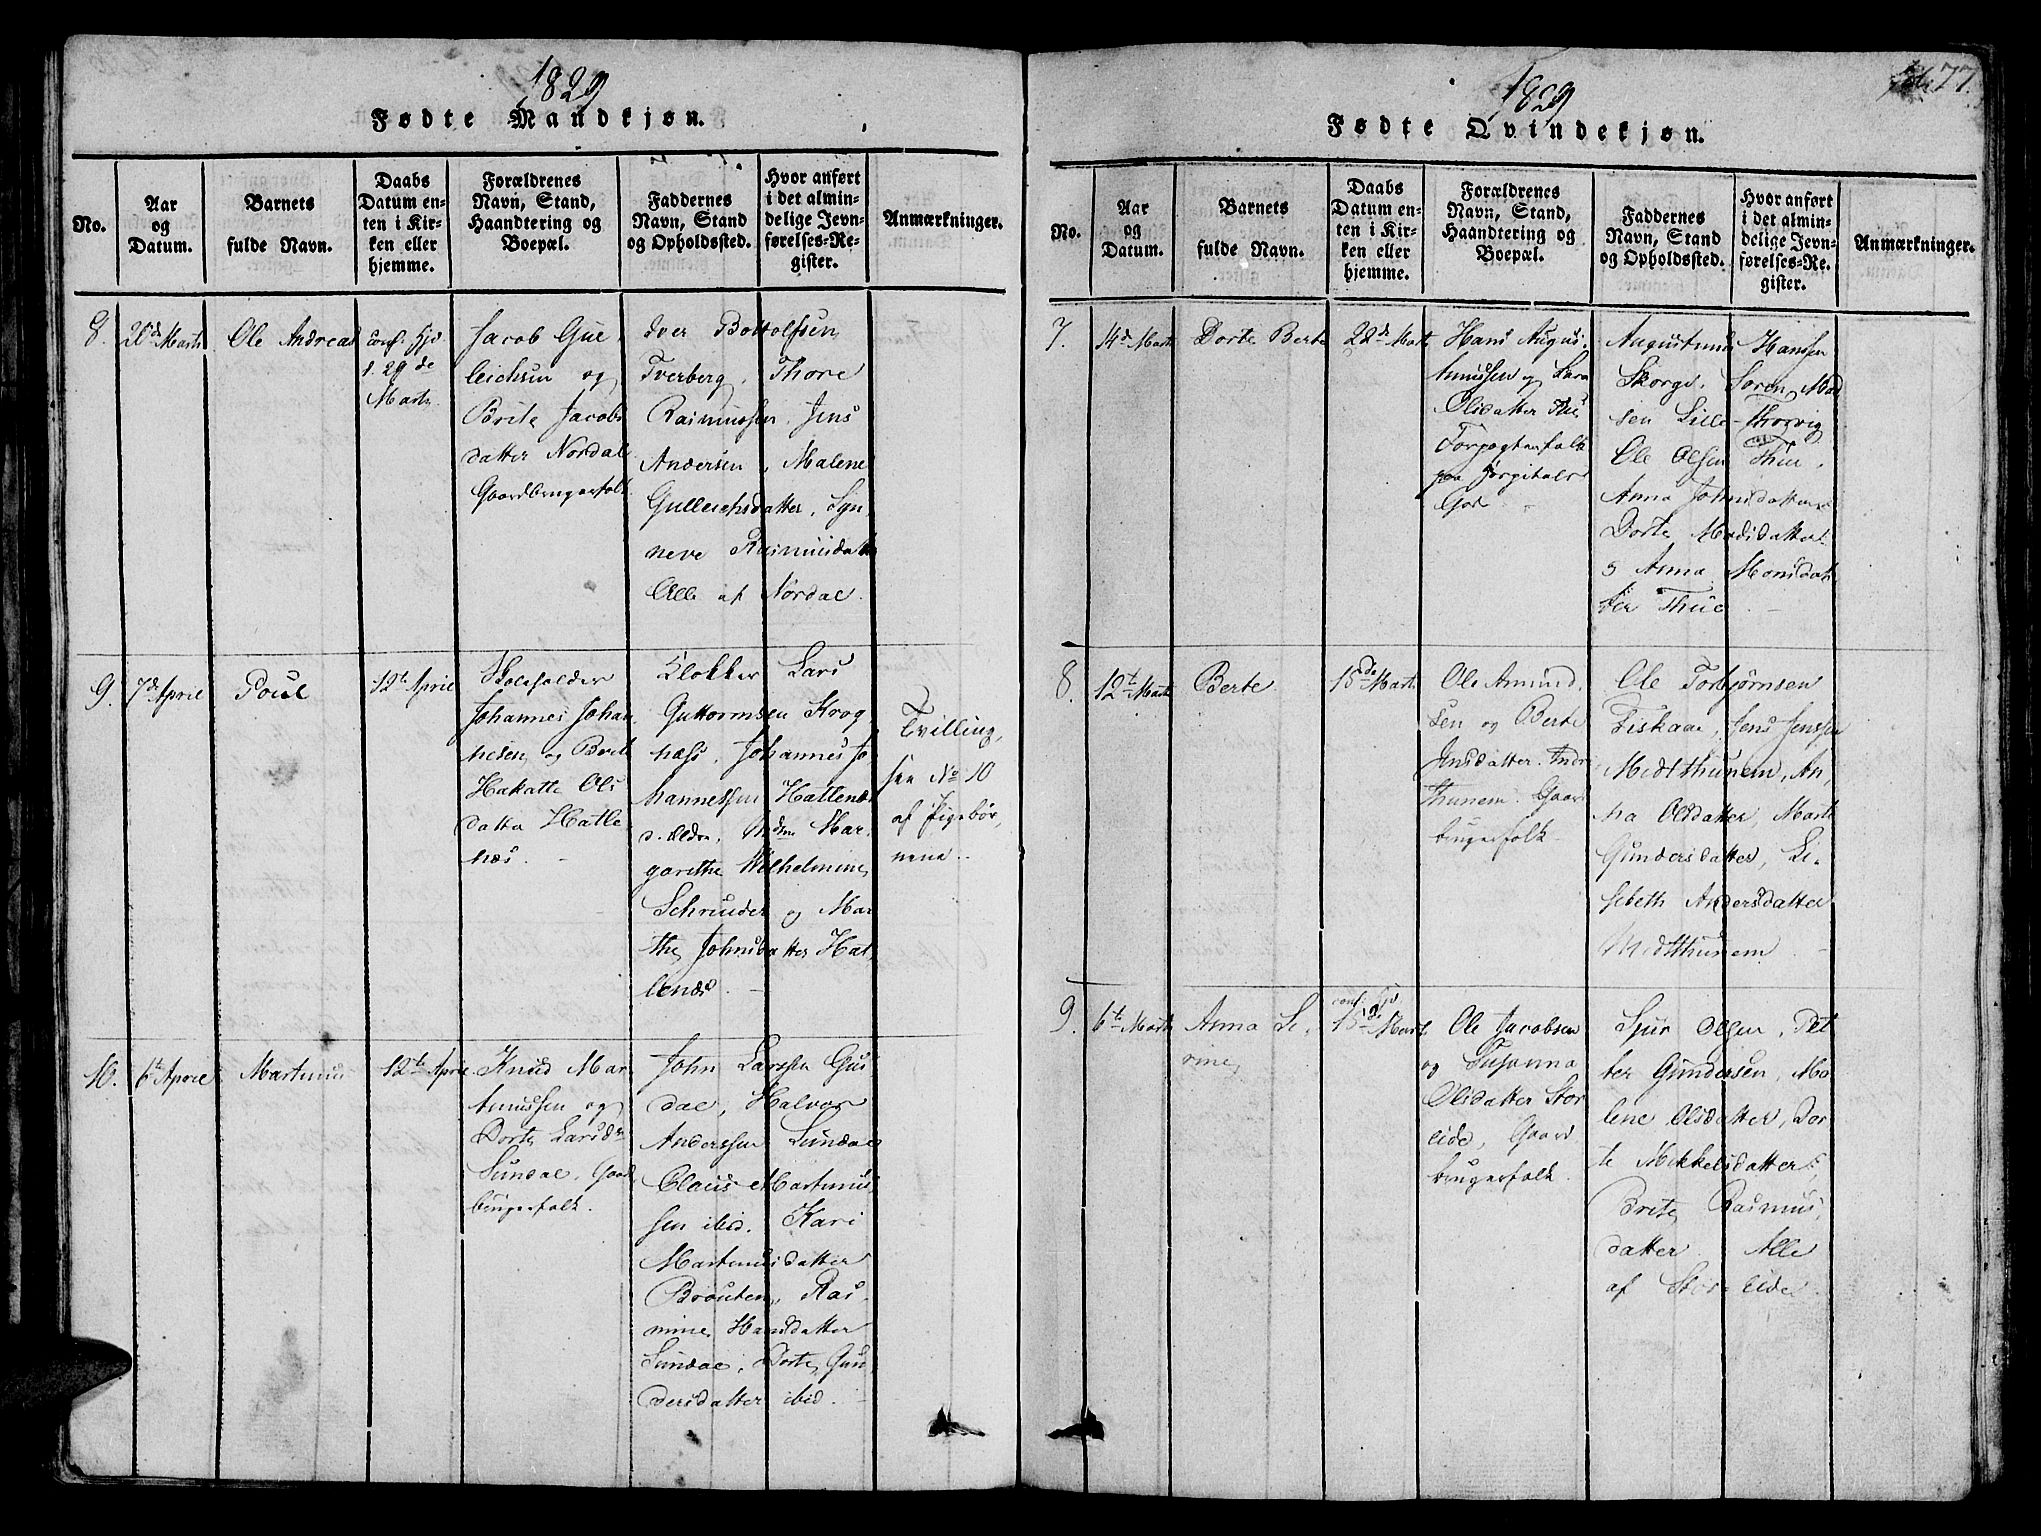 1829
Fødte Mandkjøn.
No.
Aar
og
Datum.
Barnets
fulde Navn.
Daabs
Datum en-
ten i Kir-
ken eller
hjemme.
Forældrenes
Navn, Stand,
Haandtering og
Boepæl.
Faddernes
Navn, Stand
og Opholdssted.
Hvor anført
i det almin-
delige Jevn-
førelses-Re-
gister.
Anmærkninger.
8.
20de Marts
Ole Andreas
conf. Hjd
d. 29de
Marts
Jacob Gul
leichsen og
Brite Jacobs
datter Nordal
Gaardbrugerfolk
Iver Bottolfsen
Tverberg, Thore
Rasmussen, Jens
Andersen, Malene
Gulleichsdatter, Syn
neve Rasmusdatter
Alle af Nordal.
9.
7de April
Poul
12te April
Skoleholder
Johannes Johan
nesen og Brite
Hakatte Ols
datter Hatle
næs.
Klokker Lars
Guttormsen Krog
næss, Johannes Jo
hannessen Hatlenæs
d. Ældre, Mdm Mar
garethe Wilhelmine
Schreuder og Mar
the Johnsdatter Hat
lenæs
Tvilling,
see No 10
af Pigebør
nene.
10.
6te April
Martinus
12te April
Knud Mar
tinussen og
Dorte Larsdr
Sundal, Gaard
brugerfolk.
John Larssen Gus
dal, Halvor
Anderssen Sundal
Claus Martinus
sen ibid. Kari
Martinusdatter
Brouten, Ras
mine Hansdatter
Sundal, Dorte Gun
dersdatter ibid.
1829
77.
Fødte Qvindekjøn.
No.
Aar
og
Datum.
Barnets
fulde Navn.
Daabs
Datum en-
ten i Kir-
ken eller
hjemme.
Forældrenes
Navn, Stand,
Haandtering og
Boepæl.
Faddernes
Navn, Stand
og Opholdssted.
Hvor anført
i det almin-
delige Jevn-
førelses-Re-
gister.
Anmærkninger.
7.
14de Marts
Dorte Berte
22de Marts
Hans Augus
tinussen og Lara
Olsdatter Thue
Forpagterfolk
paa Hospitalets
God
Augustinus Hanssen
Skorge, Søren Mad
sen Lille-Thorvig
Ole Olsen Thue,
Anna Johnsdatter
Dorte Madsdatter
og Anna Monsdat
ter Thue
8.
12te Marts
Berte
15de Marts
Ole Amund
sen og Berte
Jensdatter Indre
Thunem. Gaard
brugerfolk
Ole Torbjørnsen
Fiskaae, Jens Jenssen
Midtthunem, An,
na Olsdatter, Marte
Gundersdatter, Li-
sebeth Andersdatter
Midtthunem
9.
6te Marts
Anna Se
rine
conf. Hjd
15de Marts
Ole Jacobsen
og Susanna
Olsdatter Stor
eide, Gaard
brugerfolk.
Sjur Olsen, Pet
ter Gundersen, Ma
lene Olsdatter, Dor
te Mikkelsdatter,
Brite Rasmus
datter. Alle
af Storeide.